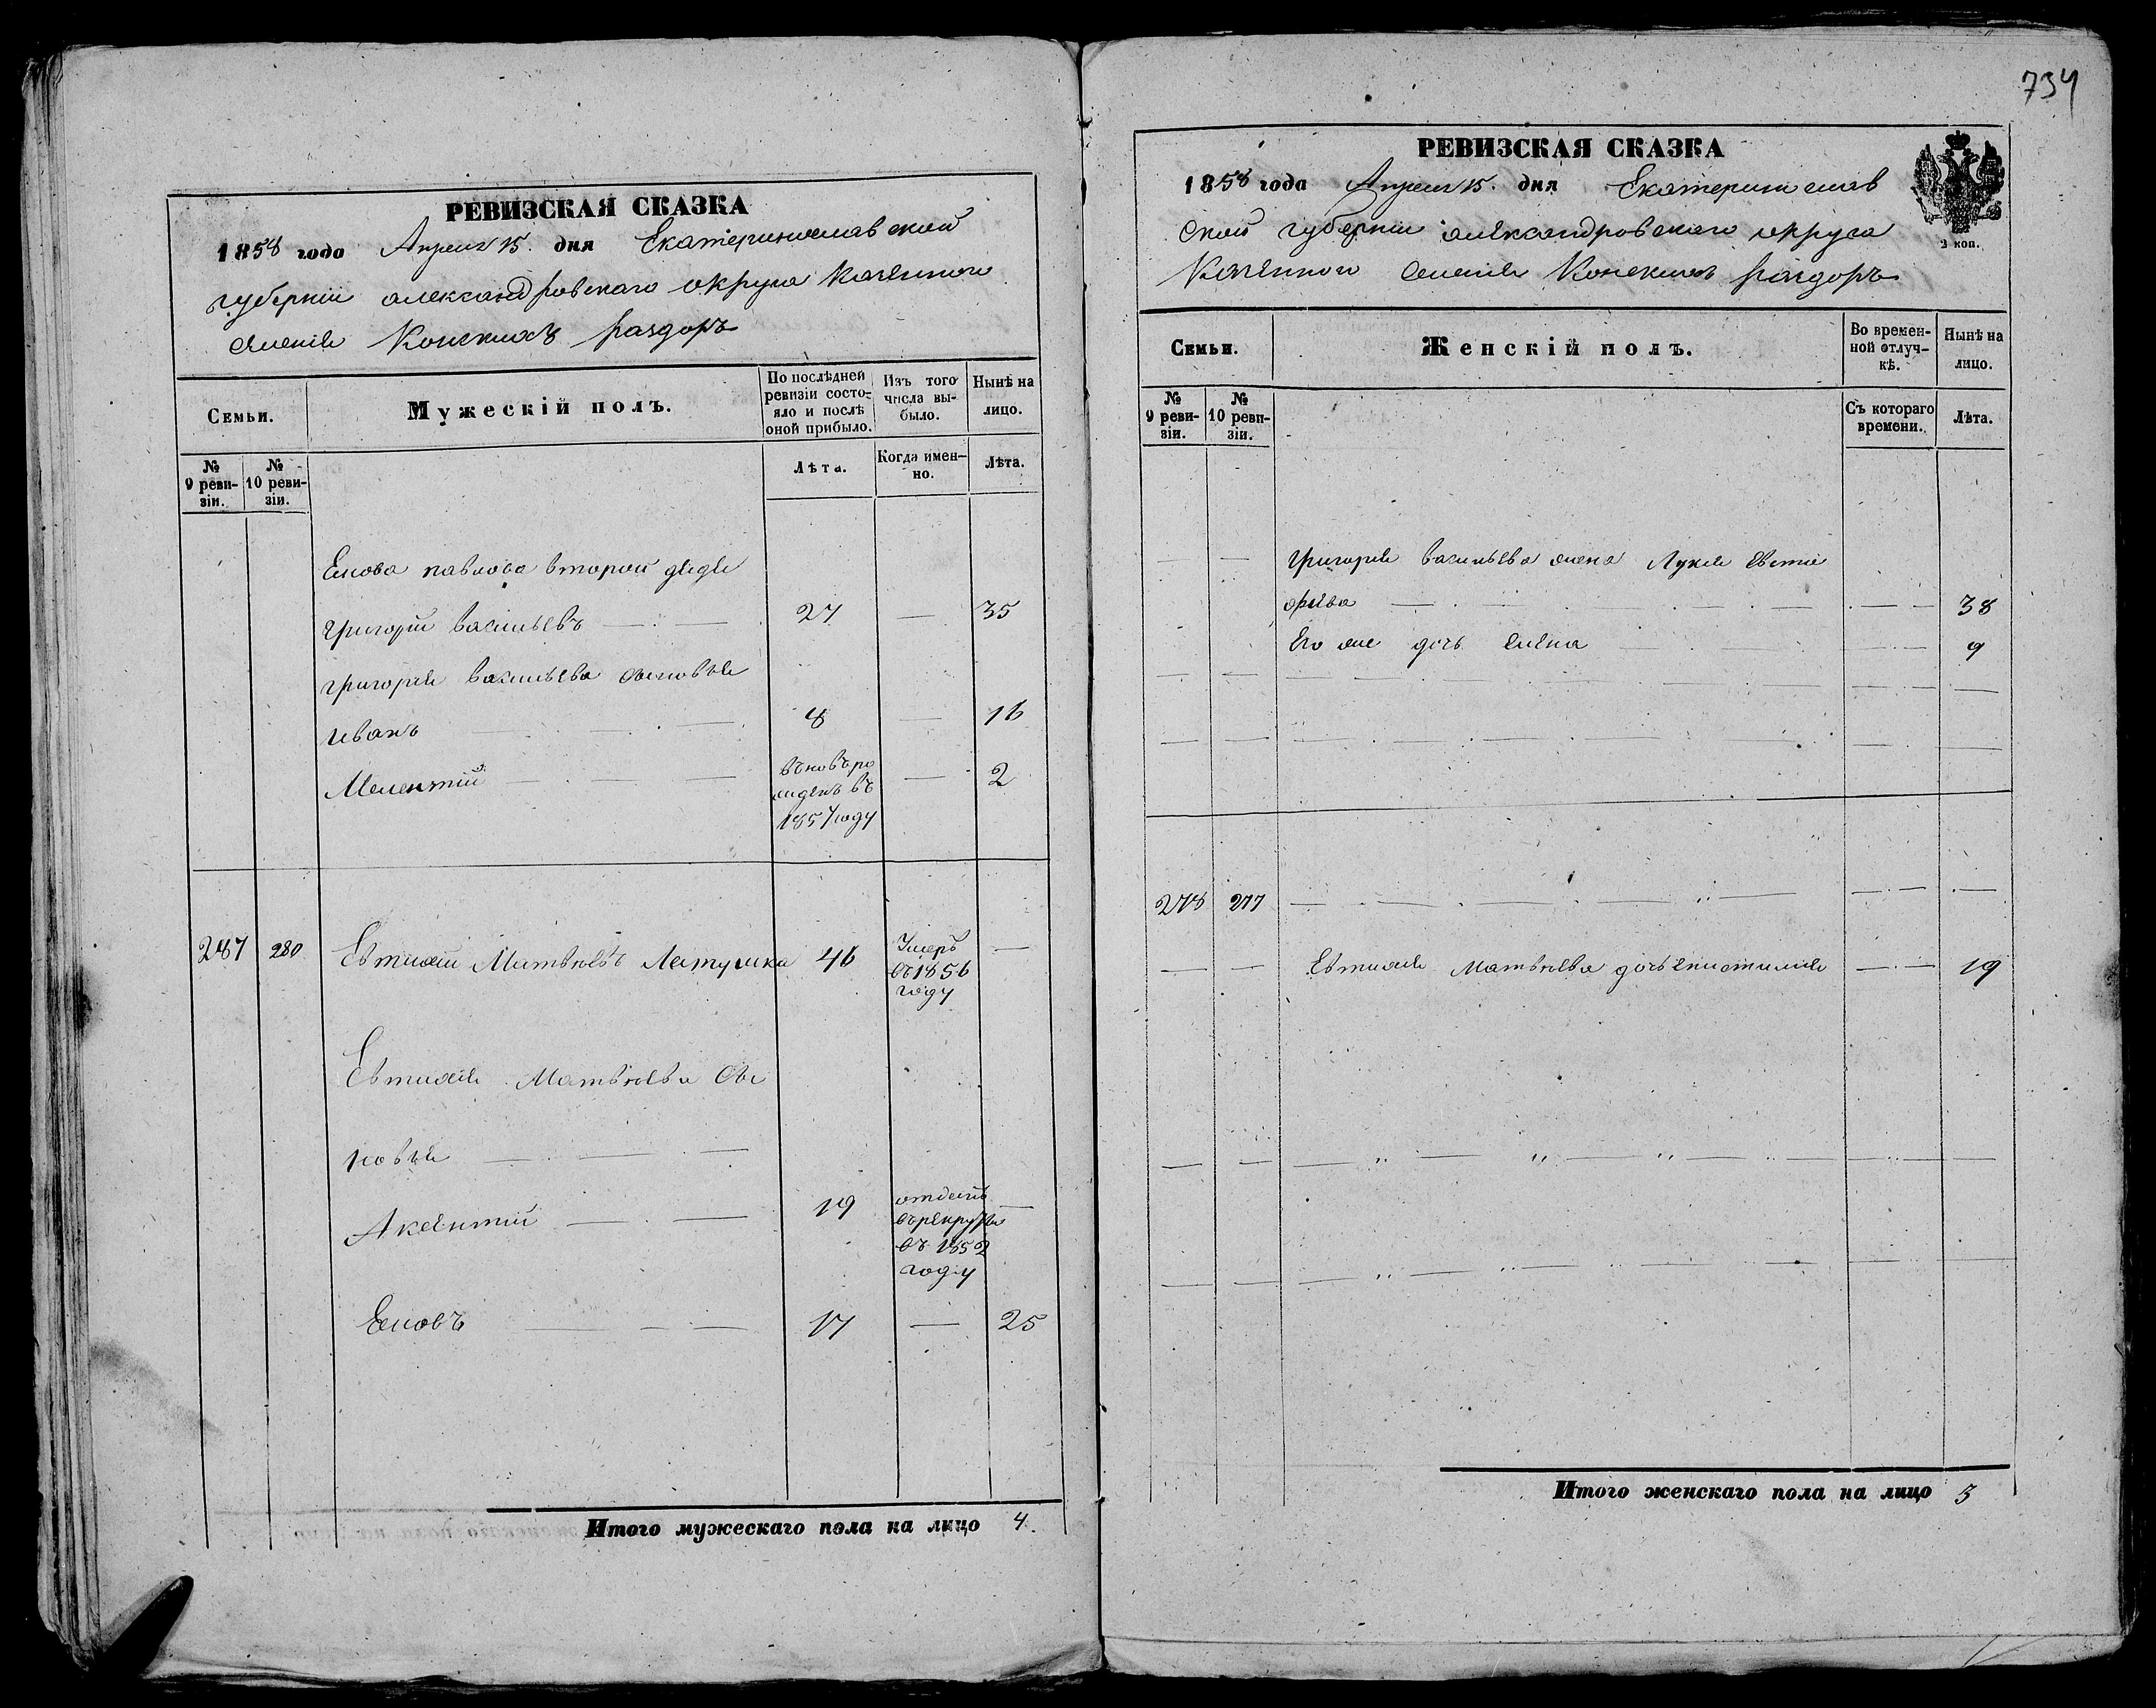 734
РЕВИЗСКАЯ СКАЗКА
1858 года Апреля 15. дня Екатеринославской
губерніи александровскаго округа казенного
селенія Конскихъ Раздоръ
Семьи.
Мужескій полъ.
По послѣдней ревизіи состояло и послѣ оной прибыло.
Изъ того числа выбыло.
Нынѣ на лицо.
№ 9 ревизіи.
№ 10 ревизіи.
Лѣта.
Когда именно.
Лѣта.
павлова второй дядя
григорій васильевъ 27 — 35
григорія васильева сыновья
иванъ 8 — 16
Мелентій вновь рожденъ въ 1857 году — 2
287 280 Евтихій Матвѣевъ 46 Умеръ въ 1856 году —
Евтихія Матвѣева сы
новья
Аксентій 19 отданъ въ рекруты въ 1852 году —
17 — 25
Итого мужескаго пола на лицо 4.
РЕВИЗСКАЯ СКАЗКА
1858 года Апреля 15. дня Екатеринослав
ской губерніи александровскаго округа
2 коп.
казенного селенія Конскихъ Раздоръ
Семьи.
Женскій полъ.
Во временной отлучкѣ.
Нынѣ на лицо.
№ 9 ревизіи.
№ 10 ревизіи.
Съ котораго времени.
Лѣта.
— — григорія васильева жена
— 38
Его же дочь елена — 9
278 277
— — Евтихія Матвѣева дочь — 19
Итого женскаго пола на лицо 3